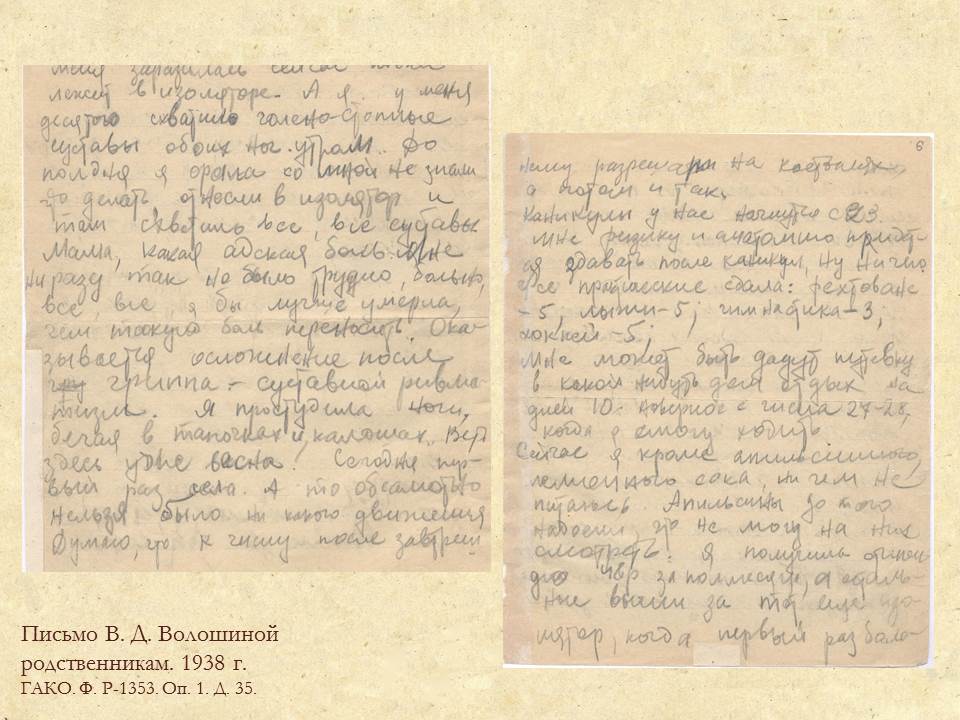 меня заразилась сейчас
лежит в изоляторе. А я у меня
десятого схватило голено-стопные
суставы обоих ног. утром. До
полдня я орала со мной не знали
что делать, отнесли в изолятор и
там схватило все, все суставы
Мама, какая адская боль. Мне
ни разу так не было трудно, больно,
все, все, я бы лучше умерла,
чем такую боль переносить. Ока-
зывается осложнение после
гриппа - суставной ревма-
тизм. Я простудила ноги,
бегая в тапочках и калошах. Ведь
здесь уже весна. Сегодня пер-
вый раз села. А то абсолютно
нельзя было ни какого движения
Думаю, что к числу после завтрем
6
нему разрешили на костылях,
а потом и так.
Каникулы у нас начнутся с 23.
Мне физику и анатомию придет-
ся сдавать после каникул, ну ничего
все практические сдала: фехтование
-5, лыжи-5; гимнастика-3;
хоккей-5;
Мне может быть дадут путевку
в какой нибудь дом отдыха на
дней 10. с числа 27-28,
когда я смогу ходить.
Сейчас я кроме апельсинного,
лемонного сока, ни чем не
питалась. Апельсины до того
надоели, что не могу на них
смотреть. Я получила
за полмесяца, а осталь-
ные вычли за тот еще изо-
лятор, когда первый раз боле-
Письмо В. Д. Волошиной
родственникам. 1938 г.
ГАКО. Ф. Р-1353. Оп. 1. Д. 35.